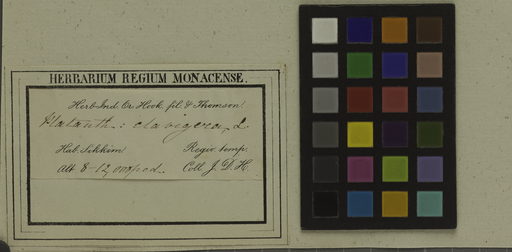 HERBARIUM REGIUM MONACENSE.
Herb. Ind. Or. Hook. fil. & Thomson.
Platanth.: clavigera, L.
Hab. Sikkim Regio temp.
Alt. 8-12,000 ped. Coll. J. D. H.